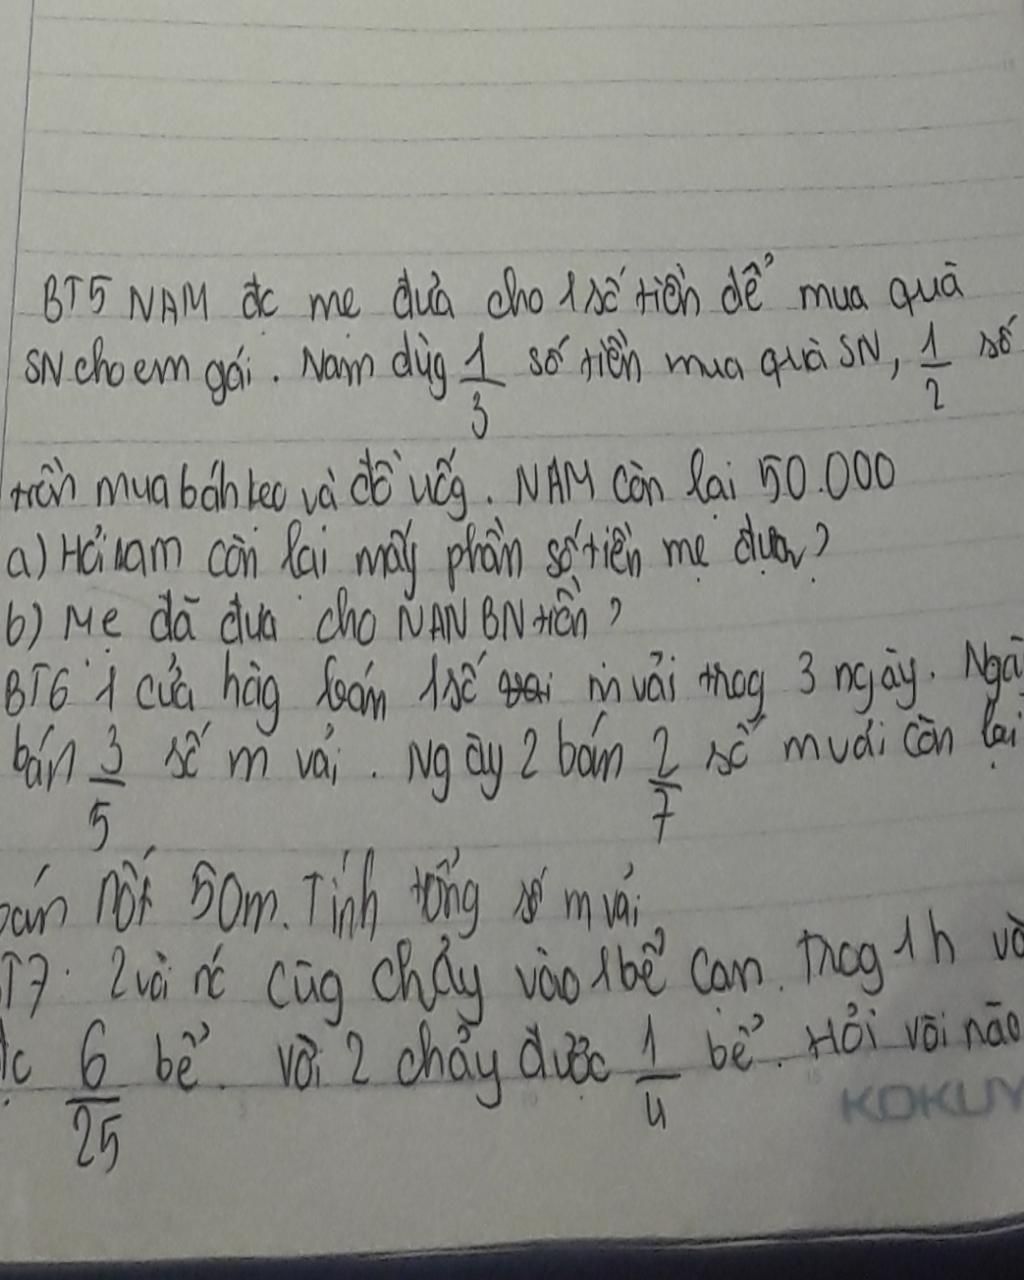 BT5 NAM đc mẹ đưa cho 1 số tiền để mua quà
SN cho em gái. Nam dùg 1/3 số tiền mua quà SN, 1/2 số
tiền mua bánh kẹo và đồ uốg. NAM còn lại 50.000
a) Hỏi nam còn lại mấy phần số tiền mẹ đưa?
b) Mẹ đã đưa cho NAN BN tiền?
BT6 1 cửa hàg bán 1 số m vải trog 3 ngày. Ngà
bán 3/5 số m vải. Ngày 2 bán 2/7 số m vải còn lại
bán nốt 50m. Tính tổng số m vải
T7. 2 vòi nc cùg chảy vào 1 bể cạn. Trog 1h vò
đc 6/25 bể. vòi 2 chảy được 1/4 bể. Hỏi vòi nào
KOKUY